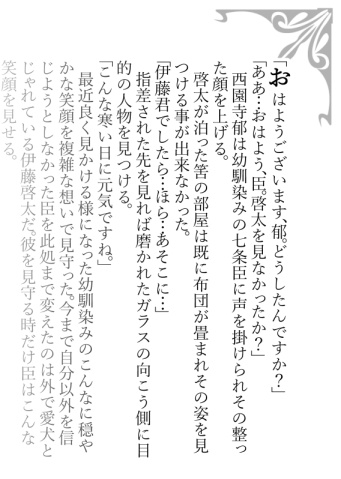 「おはようございます、郁。どうしたんですか？」
「ああ…おはよう、臣。啓太を見なかったか？」
　西園寺郁は幼馴染みの七条臣に声を掛けられその整っ
た顔を上げる。
　啓太が泊った筈の部屋は既に布団が畳まれその姿を見
つける事が出来なかった。
「伊藤君でしたら…ほら…あそこに…」
　指差された先を見れば磨かれたガラスの向こう側に目
的の人物を見つける。
「こんな寒い日に元気ですね。」
　最近良く見かける様になった幼馴染みのこんなに穏や
かな笑顔を複雑な想いで見守った。今まで自分以外を信
じようとしなかった臣を此処まで変えたのは外で愛犬と
じゃれている伊藤啓太だ。彼を見守る時だけ臣はこんな
笑顔を見せる。